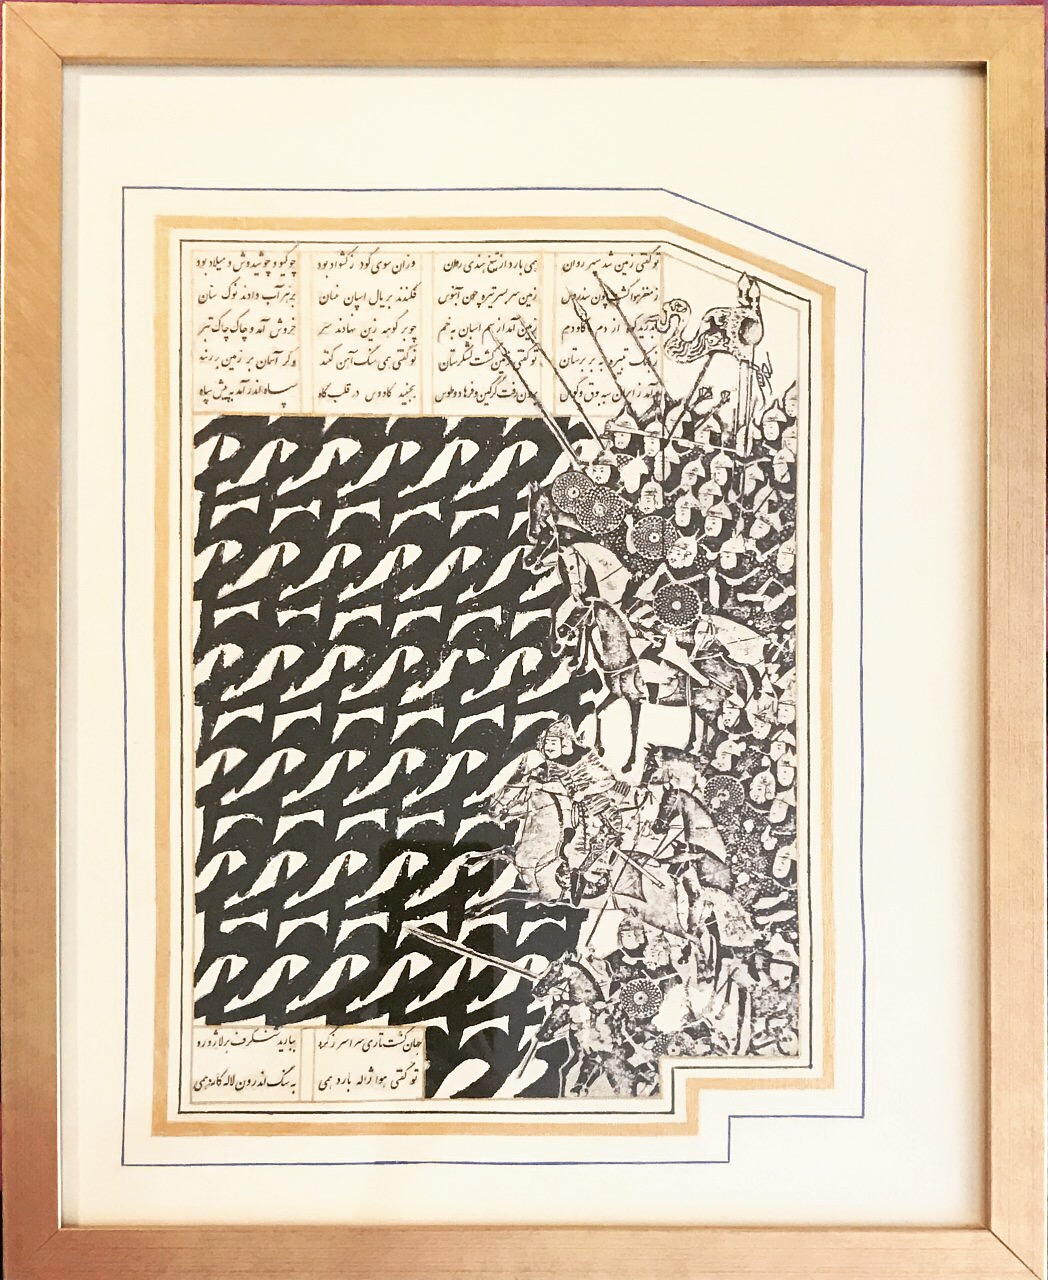 تو گفتی زمین شد سپهر روان همی بارد از تیغ هندی روان وزان سوی گودرز کشواد بود چو گیو و چو شیدوش و میلاد بود
ز مغفر هوا گشت چون سندروس زمین سر بسر تیره چون آبنوس فکندند بر یال اسپان عنان بزهر آب دادند نوک سنان
از دم گاودم زمین آمد از سم اسپان به خم چو بر کوهه زین نهادند سر خروش آمد و چاک چاک تبر
تبیره به بربرستان تو گفتی زمین گشت لشکرستان تو گفتی همی سنگ آهن کند وگر آسمان بر زمین بر زند
برآمد ز ایران سپه بوق و کوس برون رفت گرگین و فرهاد و طوس بجنبید کاوس در قلب گاه سپاه اندر آمد به پیش سپاه
جهان گشت تاری سراسر ز گرد ببارید شنگرف بر لاژورد
تو گفتی هوا ژاله بارد همی به سنگ اندرون لاله کارد همی